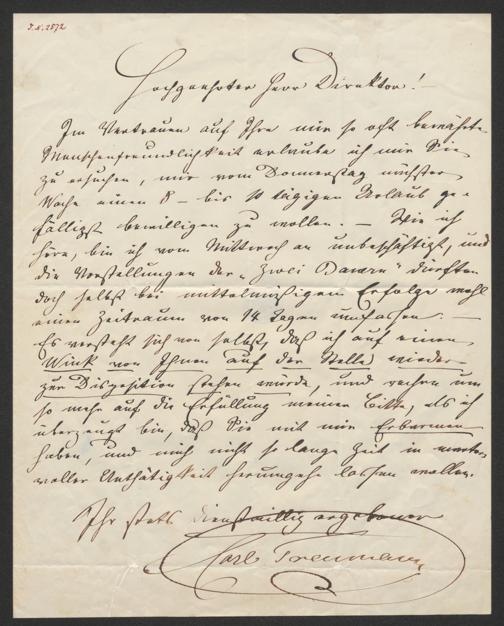 J.N. 2572
Hochgeehrter Herr Direktor! -
Im Vertrauen auf Ihre mir so oft bewährte
Menschenfreundlichkeit erlaube ich mir Sie
zu ersuchen, mir vom Donnerstag nächster
Woche einen 8 - bis 10 tägigen Urlaub ge-
fälligst bewilligen zu wollen. - Wie ich
höre, bin ich vom Mittwoch an unbeschäftigt, und
die Vorstellungen der "Zwei" dürften
doch selbst bei mittelmäßigem Erfolge wohl
einen Zeitraum von 14 Tagen umfassen. -
Es versteht sich von selbst, daß ich auf einen
Wink von Ihnen auf der Stelle wieder
zur Disposition stehen würde, und rechne um
so mehr auf die Erfüllung meiner Bitte, als ich
überzeugt bin, daß Sie mit mir Erbarmen
haben, und mich nicht so lange Zeit in marter-
voller Unthätigkeit herumgehn lassen wollen.
Ihr stets dienstwillig ergebener
Carl Treumann